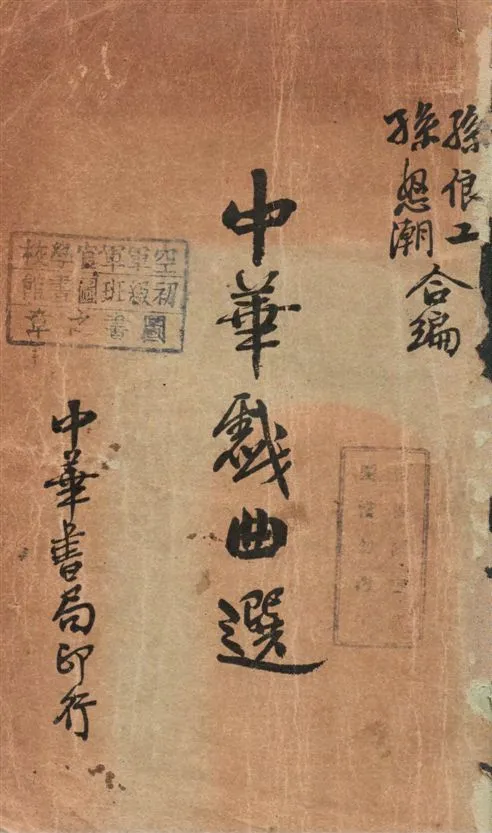 孫俍工
孫怒潮
合編
中華戲曲選
空軍軍官學校
初級班圖書館
圖書之章
中華書局印行